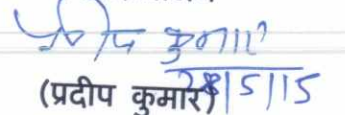 प्रदीप कुमार
28/5/15
(प्रदीप कुमार)